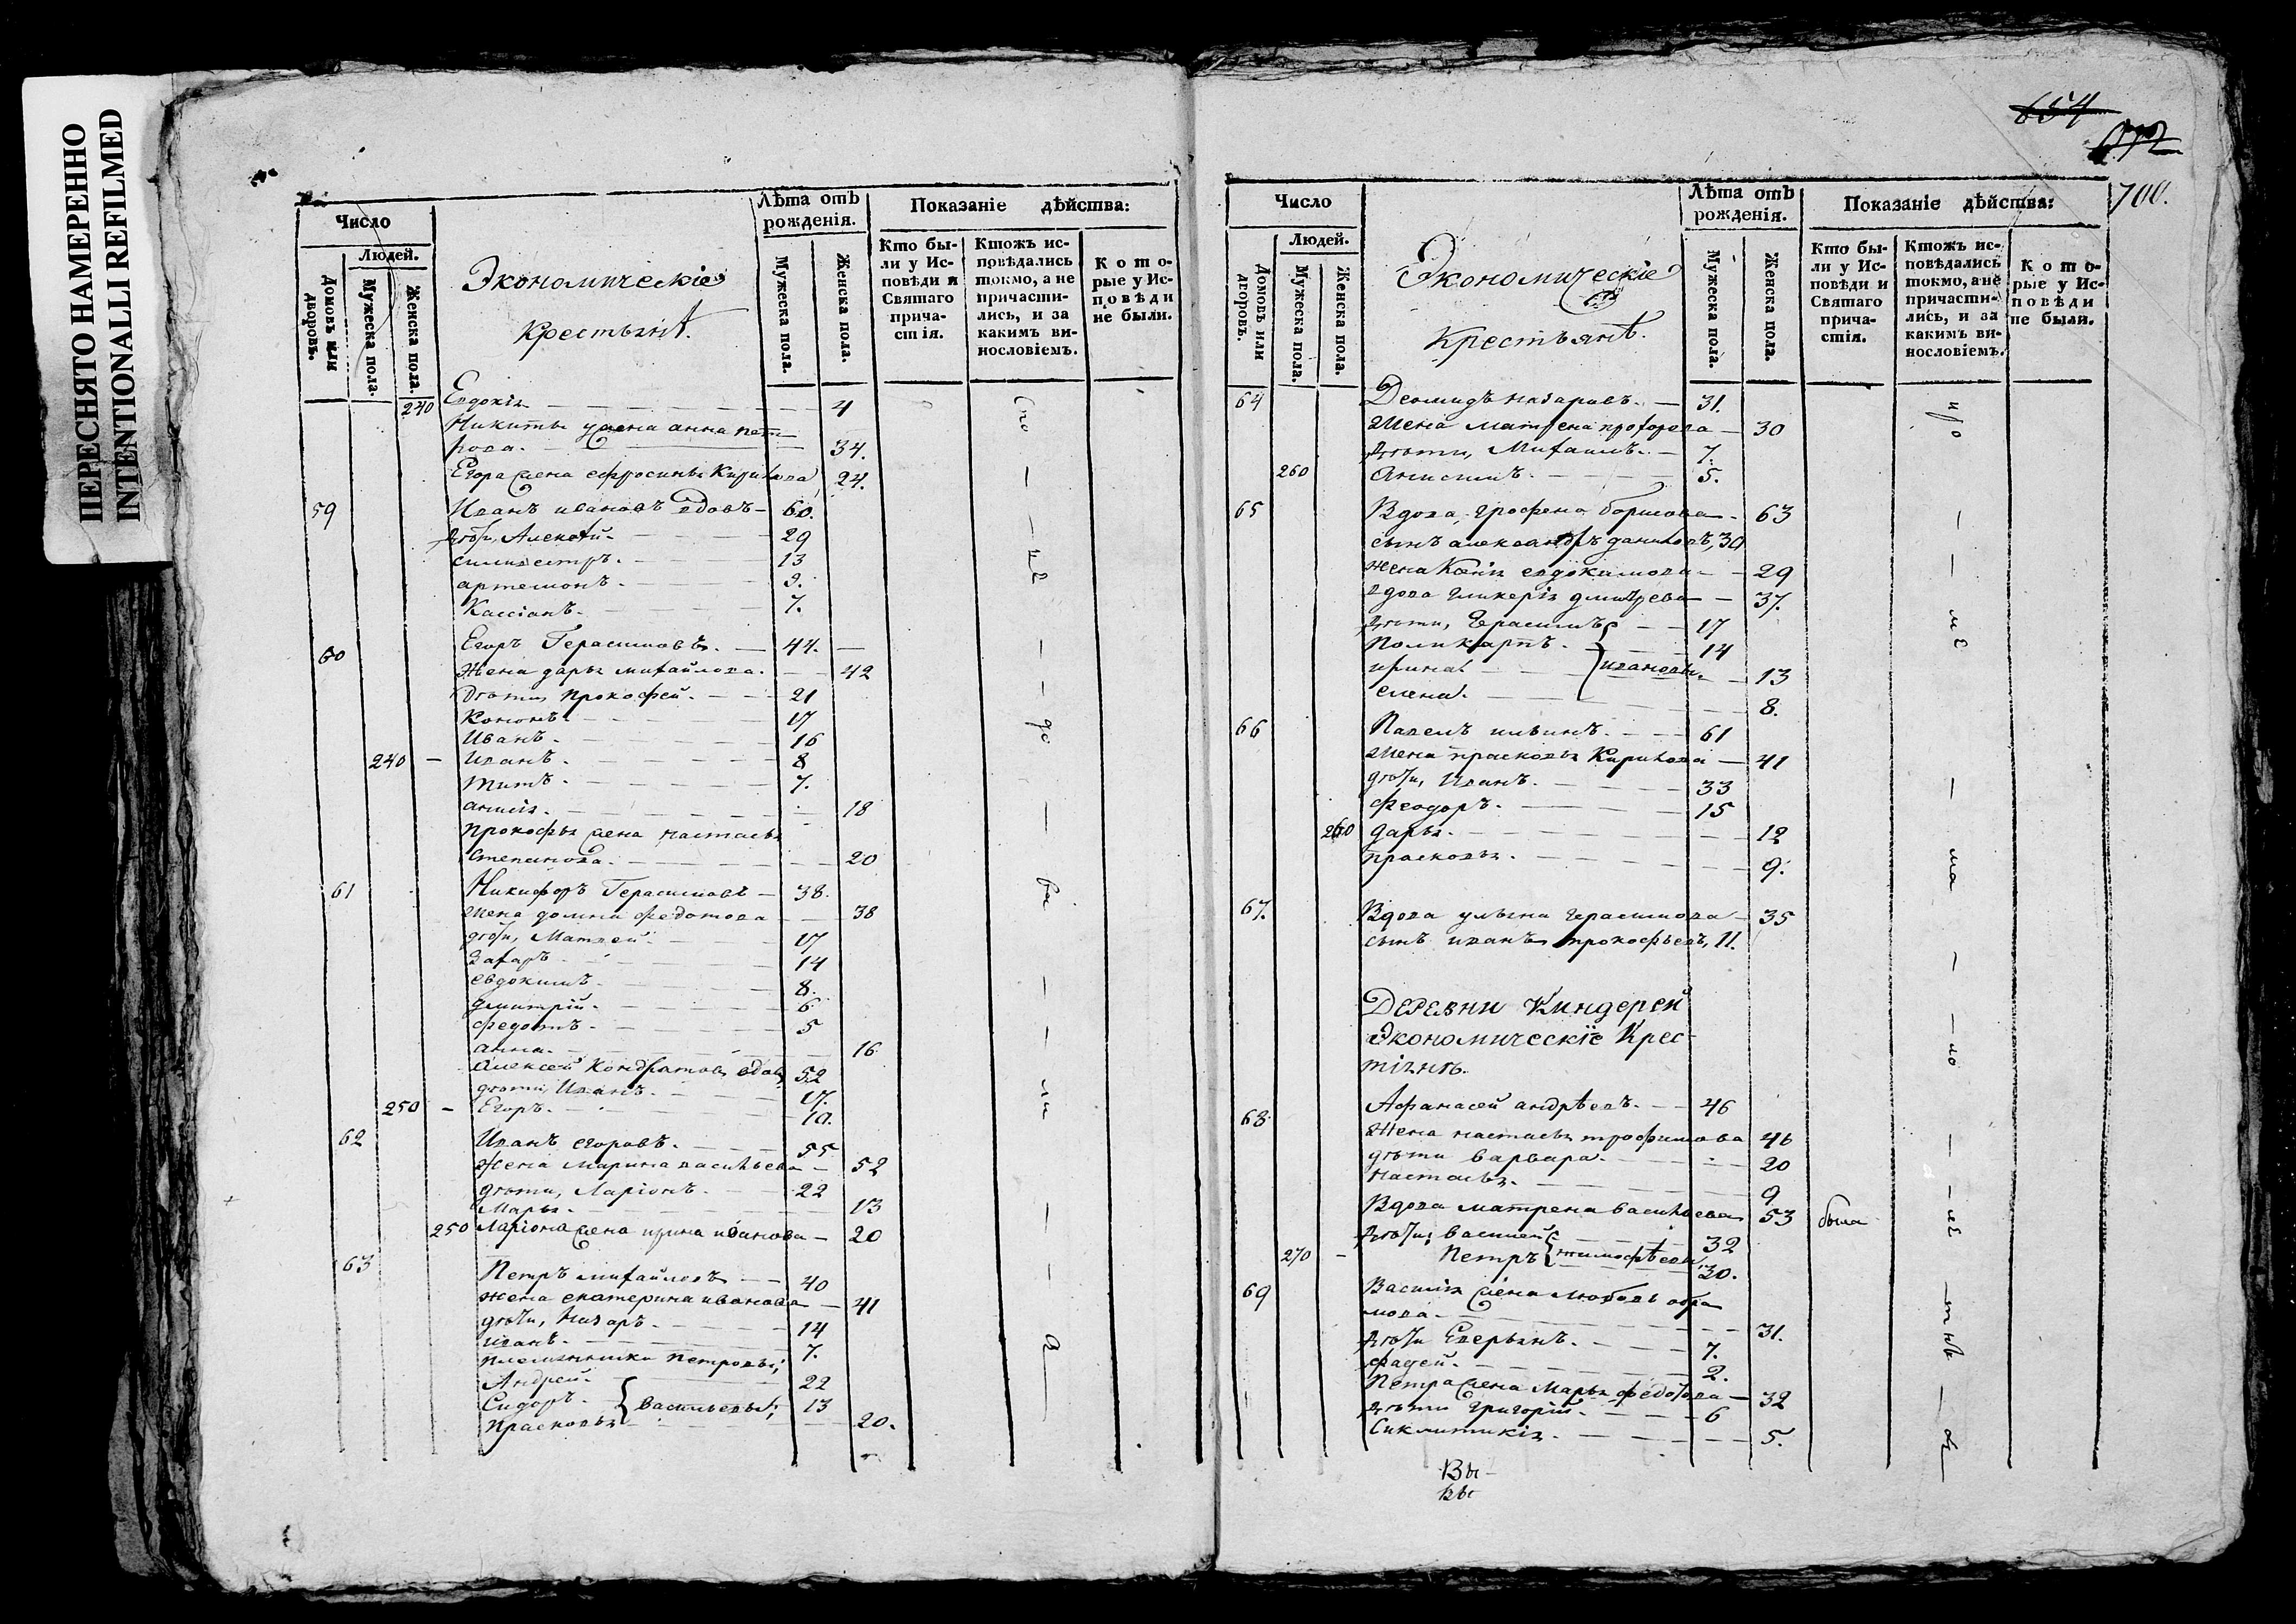 ПЕРЕСНЯТО НАМЕРЕННО
INTENTIONALLI REFILMED
Число
Людей.
Домовъ или дворовъ.
Мужеска пола.
Женска пола.
Экономическіе
Крестьянѣ.
Лѣта отъ рожденія.
Мужеска пола.
Женска пола.
Показаніе дѣйства:
Кто были у Исповѣди и Святаго причастія.
Ктожъ исповѣдались токмо, а не причастились, и за какимъ винословіемъ.
Которые у Исповѣди не были.
240 Евдокія 4
Никиты жена анна пет-
рова. 34.
Егора жена ефросинья Кирилова 24.
59 Иванъ ивановъ вдовъ 60.
дѣти, Алексѣй 29
силивестръ. 13
артемонъ. 9.
Кассіанъ. 7.
60 Егоръ Герасимовъ. 44.
Жена дарья михайлова. 42
Дѣти, прокофей. 21
Кононъ. 17
Иванъ. 16
240 Иванъ. 8
титъ. 7.
18
прокофья жена настасья
степанова. 20
61 Никифоръ Герасимовъ 38.
жена домна федотова 38
дѣти, Матвей. 17
Захаръ 14
евдокимъ. 8.
дмитрій. 6
федотъ. 5
анна. 16
Алексей Кондратовъ вдовъ 52
дѣти, Иванъ. 17.
250 Егоръ. 10.
62 Иванъ егоровъ. 55
Жена Марина васильева 52
дѣти, Ларіонъ. 22
Марья. 13
250 Ларіона жена ирина иванова 20
63 Петръ михайловъ 40
жена екатерина иванова 41
дѣти, Назаръ. 14
иванъ. 7.
племянники петровы;
Андрей. 22
Сидоръ. васильевы; 13
Прасковья 20.
654
672
700.
Число
Людей.
Домовъ или дворовъ.
Мужеска пола.
Женска пола.
Экономическіе
Крестьянѣ.
Лѣта отъ рожденія.
Мужеска пола.
Женска пола.
Показаніе дѣйства:
Кто были у Исповѣди и Святаго причастія.
Ктожъ исповѣдались токмо, а не причастились, и за какимъ винословіемъ.
Которые у Исповѣди не были.
64 Деомидъ назаровъ. 31.
Жена Матрена прохорова 30
дѣти, Михаилъ. 7.
260 Анисимъ. 5.
65 Вдова, грофена борисова 63
сынъ александръ даниловъ, 30
жена Ксенія евдокимова 29
вдова гликерія дмитрева 37.
дѣти, Герасимъ 17
Поликарпъ. 14
ирина ивановы 13
елена. 8.
66 Павелъ ильинъ. 61
Жена прасковья Кирилова 41
дѣти, Иванъ. 33
феодоръ. 15
260 дарья. 12
прасковья. 9.
67. Вдова ульяна герасимова 35
сынъ иванъ прокофьевъ, 11.
Деревни Киндерей
Экономическіе Крес-
тіянѣ.
68 Афанасей андрѣевъ. 46
Жена настасья трофимова 46
дѣти варвара. 20
настасья. 9
Вдова матрена васильева 53 была
дѣти, василей 32
270 петръ тимофѣевы, 30.
69 Василья жена любовь абра
мова. 31.
дѣти Еверьянъ. 7.
фадей. 2.
Петра жена Марья федотова 32
дѣти григорій. 6
Сиклитикія. 5.
Вы-
вы